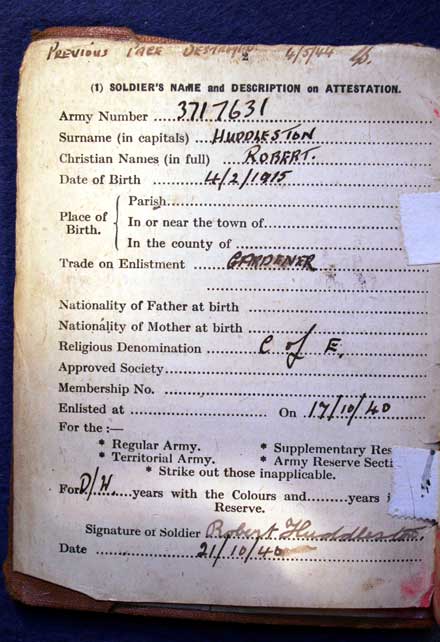 PREVIOUS PAGE DESTROYED. 4/5/44
2
(1) SOLDIER'S NAME and DESCRIPTION on ATTESTATION.
Army Number 3717631
Surname (in capitals) HUDDLESTON
Christian Names (in full) ROBERT.
Date of Birth 4/2/1915
Place of Birth. Parish
In or near the town of
In the county of
Trade on Enlistment GARDENER
Nationality of Father at birth
Nationality of Mother at birth
Religious Denomination C of E.
Approved Society
Membership No.
Enlisted at On 17/10/40
For the :—
* Regular Army. * Supplementary Res
* Territorial Army. * Army Reserve Secti
* Strike out those inapplicable.
For D/W. years with the Colours and years i
Reserve.
Signature of Soldier Robert Huddleston.
Date 21/10/40